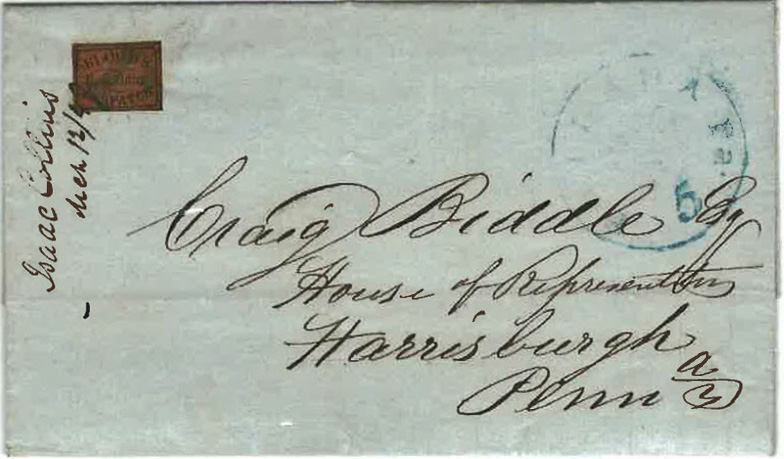 BLOOD'S
DESPATCH
Isaac Collins
Mch 12/
5
Craig Biddle Esq
House of Representatives
Harrisburgh
Penn a